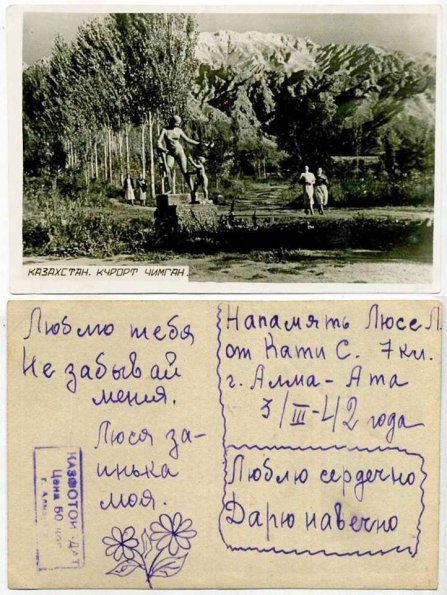 КАЗАХСТАН. КУРОРТ ЧИМГАН.
Люблю тебя
Не забывай
меня.
Люся за-
инька
моя.
Цена 50 коп
Напамять Люсе Л.
от Кати С. 7 кл.
г. Алма-Ата
3/III-42 года
Люблю сердечно
Дарю навечно